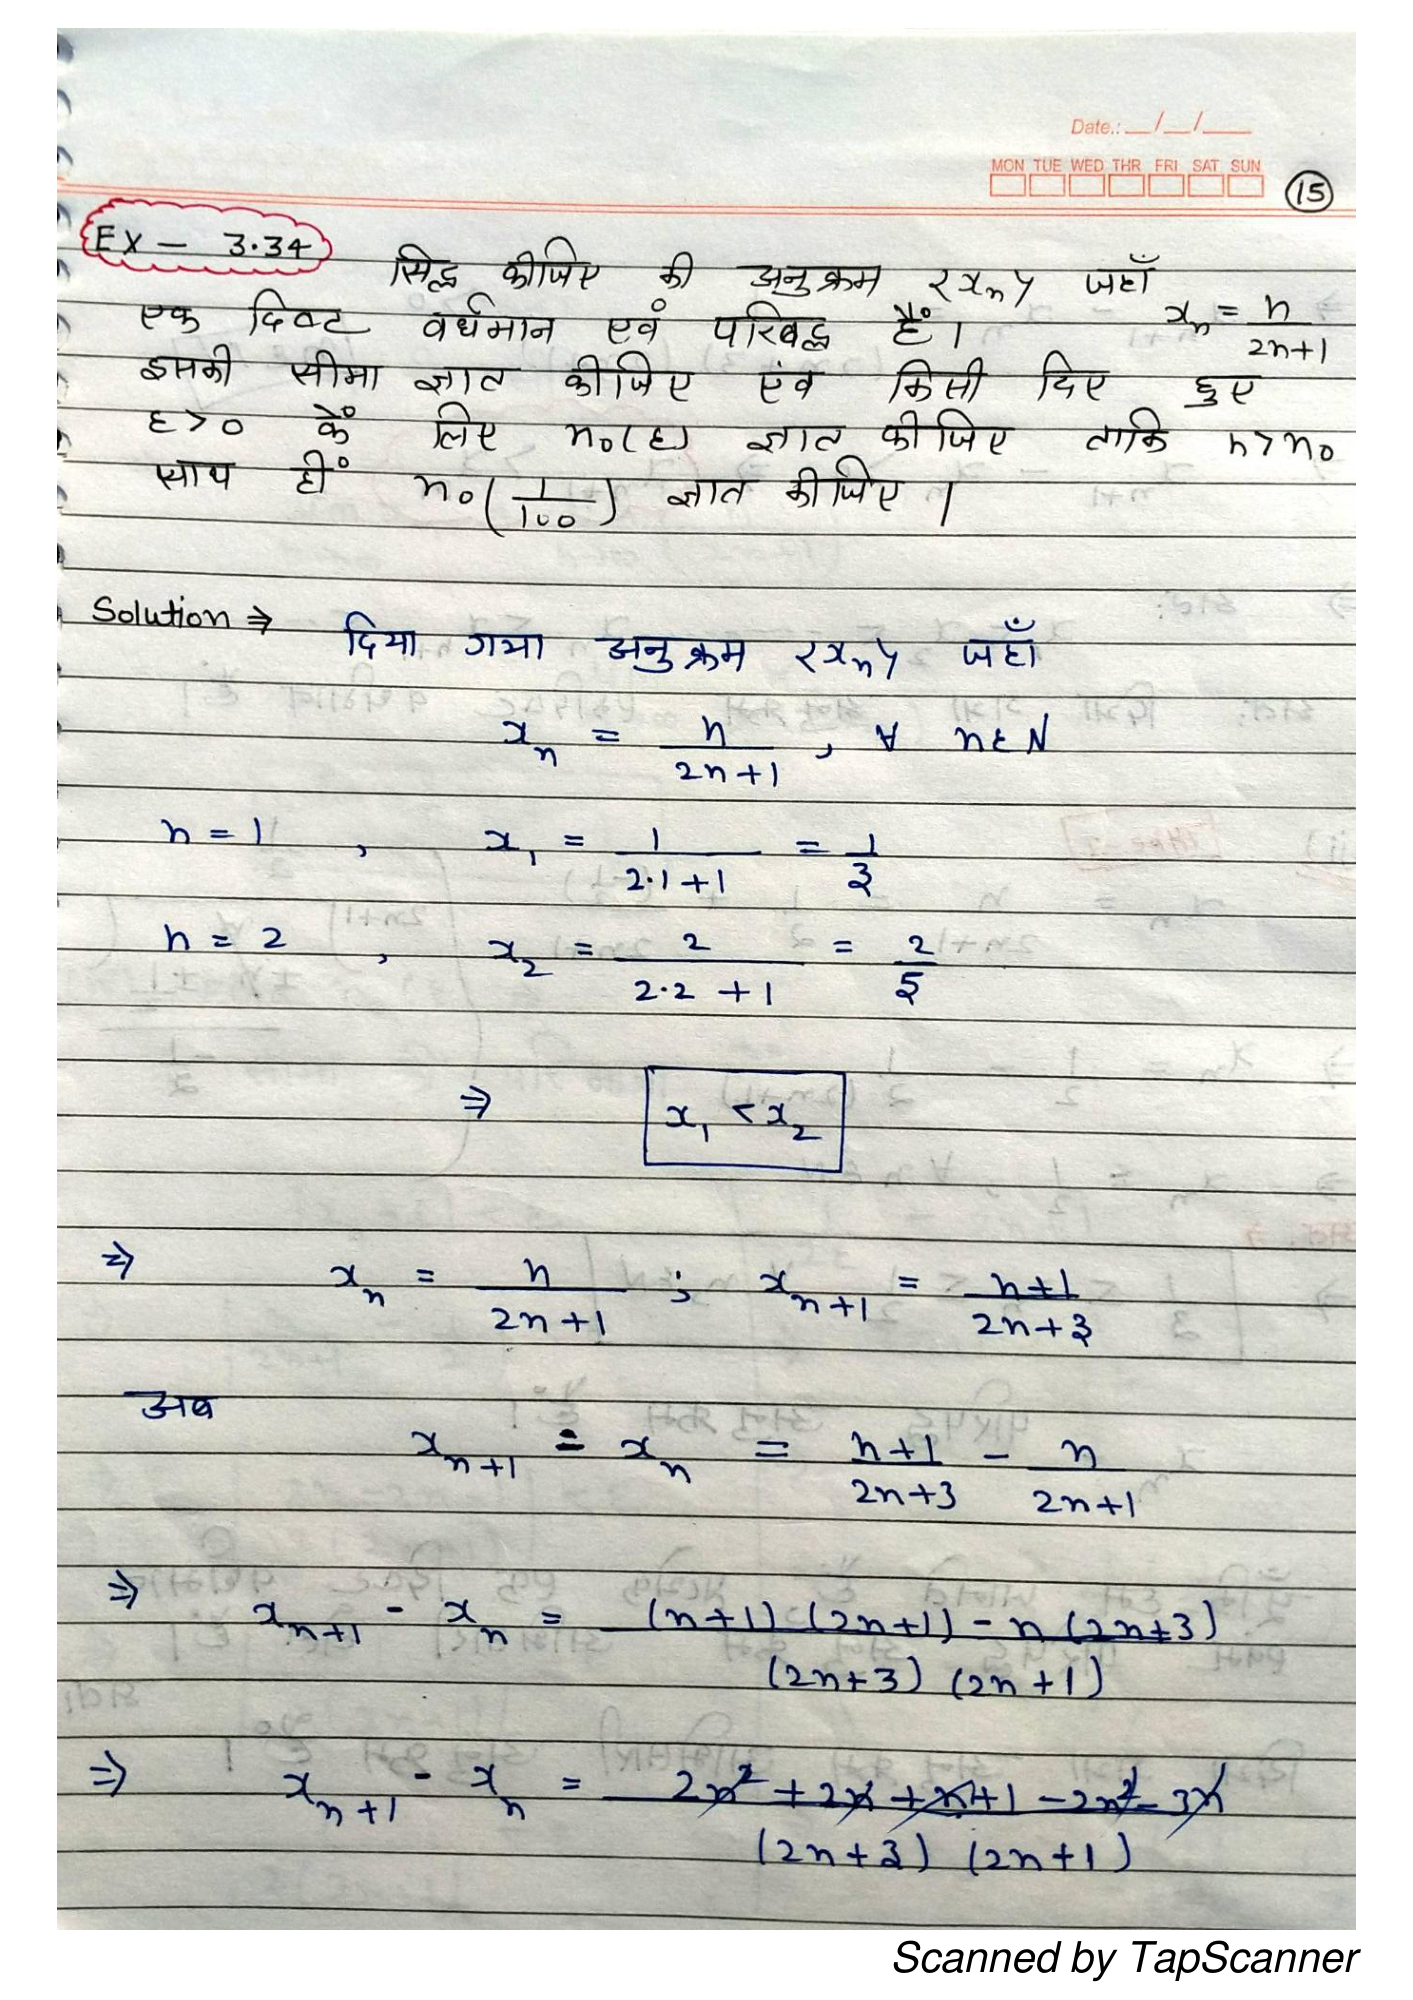 Date.: __/__/____
MON TUE WED THR FRI SAT SUN
15
EX - 3.34 सिद्ध कीजिए की अनुक्रम {xₙ} जहाँ xₙ = n/(2n+1)
एक दिष्ट वर्धमान एवं परिबद्ध हैं।
इसकी सीमा ज्ञात कीजिए एंव किसी दिए हुए
ε>0 कें लिए n₀(ε) ज्ञात कीजिए ताकि n>n₀
साथ हीं n₀(1/100) ज्ञात कीजिए।
Solution ⇒ दिया गया अनुक्रम {xₙ} जहाँ
xₙ = n/(2n+1), ∀ n∈N
n = 1, x₁ = 1/(2·1+1) = 1/3
n = 2, x₂ = 2/(2·2+1) = 2/5
⇒ x₁ < x₂
⇒ xₙ = n/(2n+1) ; xₙ₊₁ = (n+1)/(2n+3)
अब
xₙ₊₁ - xₙ = (n+1)/(2n+3) - n/(2n+1)
⇒ xₙ₊₁ - xₙ = ((n+1)(2n+1) - n(2n+3))/((2n+3)(2n+1))
⇒ xₙ₊₁ - xₙ = (2n² + 2n + n + 1 - 2n² - 3n)/((2n+3)(2n+1))
Scanned by TapScanner